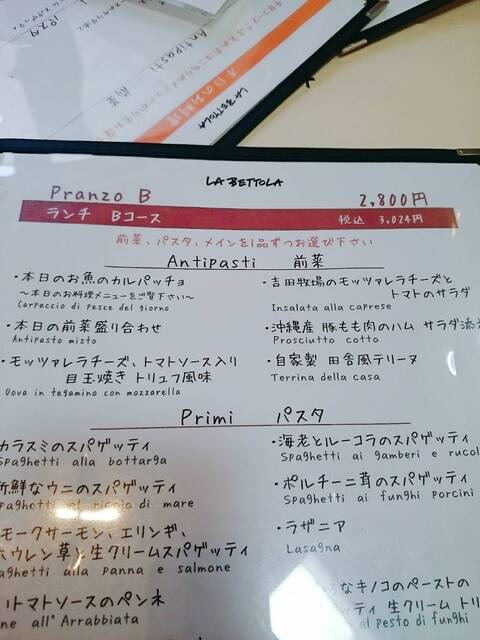 パスタ
Antipasti 前菜
本日のお料理
LA BETTOLA
LA BETTOLA
Pranzo B 2,800円
ランチ Bコース 税込 3,024円
前菜、パスタ、メインを1品ずつお選び下さい
Antipasti 前菜
・本日のお魚のカルパッチョ
〜本日のお料理メニューをご覧下さい〜
Carpaccio di pesce del giorno
・本日の前菜盛り合わせ
Antipasto misto
・モッツァレラチーズ、トマトソース入り
目玉焼き トリュフ風味
Uova in tegamino con mozzarella
・吉田牧場のモッツァレラチーズと
トマトのサラダ
Insalata alla caprese
・沖縄産 豚もも肉のハム サラダ添
Prosciutto cotto
・自家製 田舎風テリーヌ
Terrina della casa
Primi パスタ
カラスミのスパゲッティ
Spaghetti alla bottarga
新鮮なウニのスパゲッティ
spaghetti del riccio di mare
モークサーモン、エリンギ、
ホウレン草と生クリームスパゲッティ
aghetti alla panna e salmone
トマトソースのペンネ
ne all'Arrabbiata
・海老とルーコラのスパゲッティ
Spaghetti ai gamberi e rucol
・ポルチーニ茸のスパゲッティ
Spaghetti ai funghi porcini
・ラザニア
Lasagna
なキノコのペーストの
ティ 生クリーム トリ
al pesto di funghi